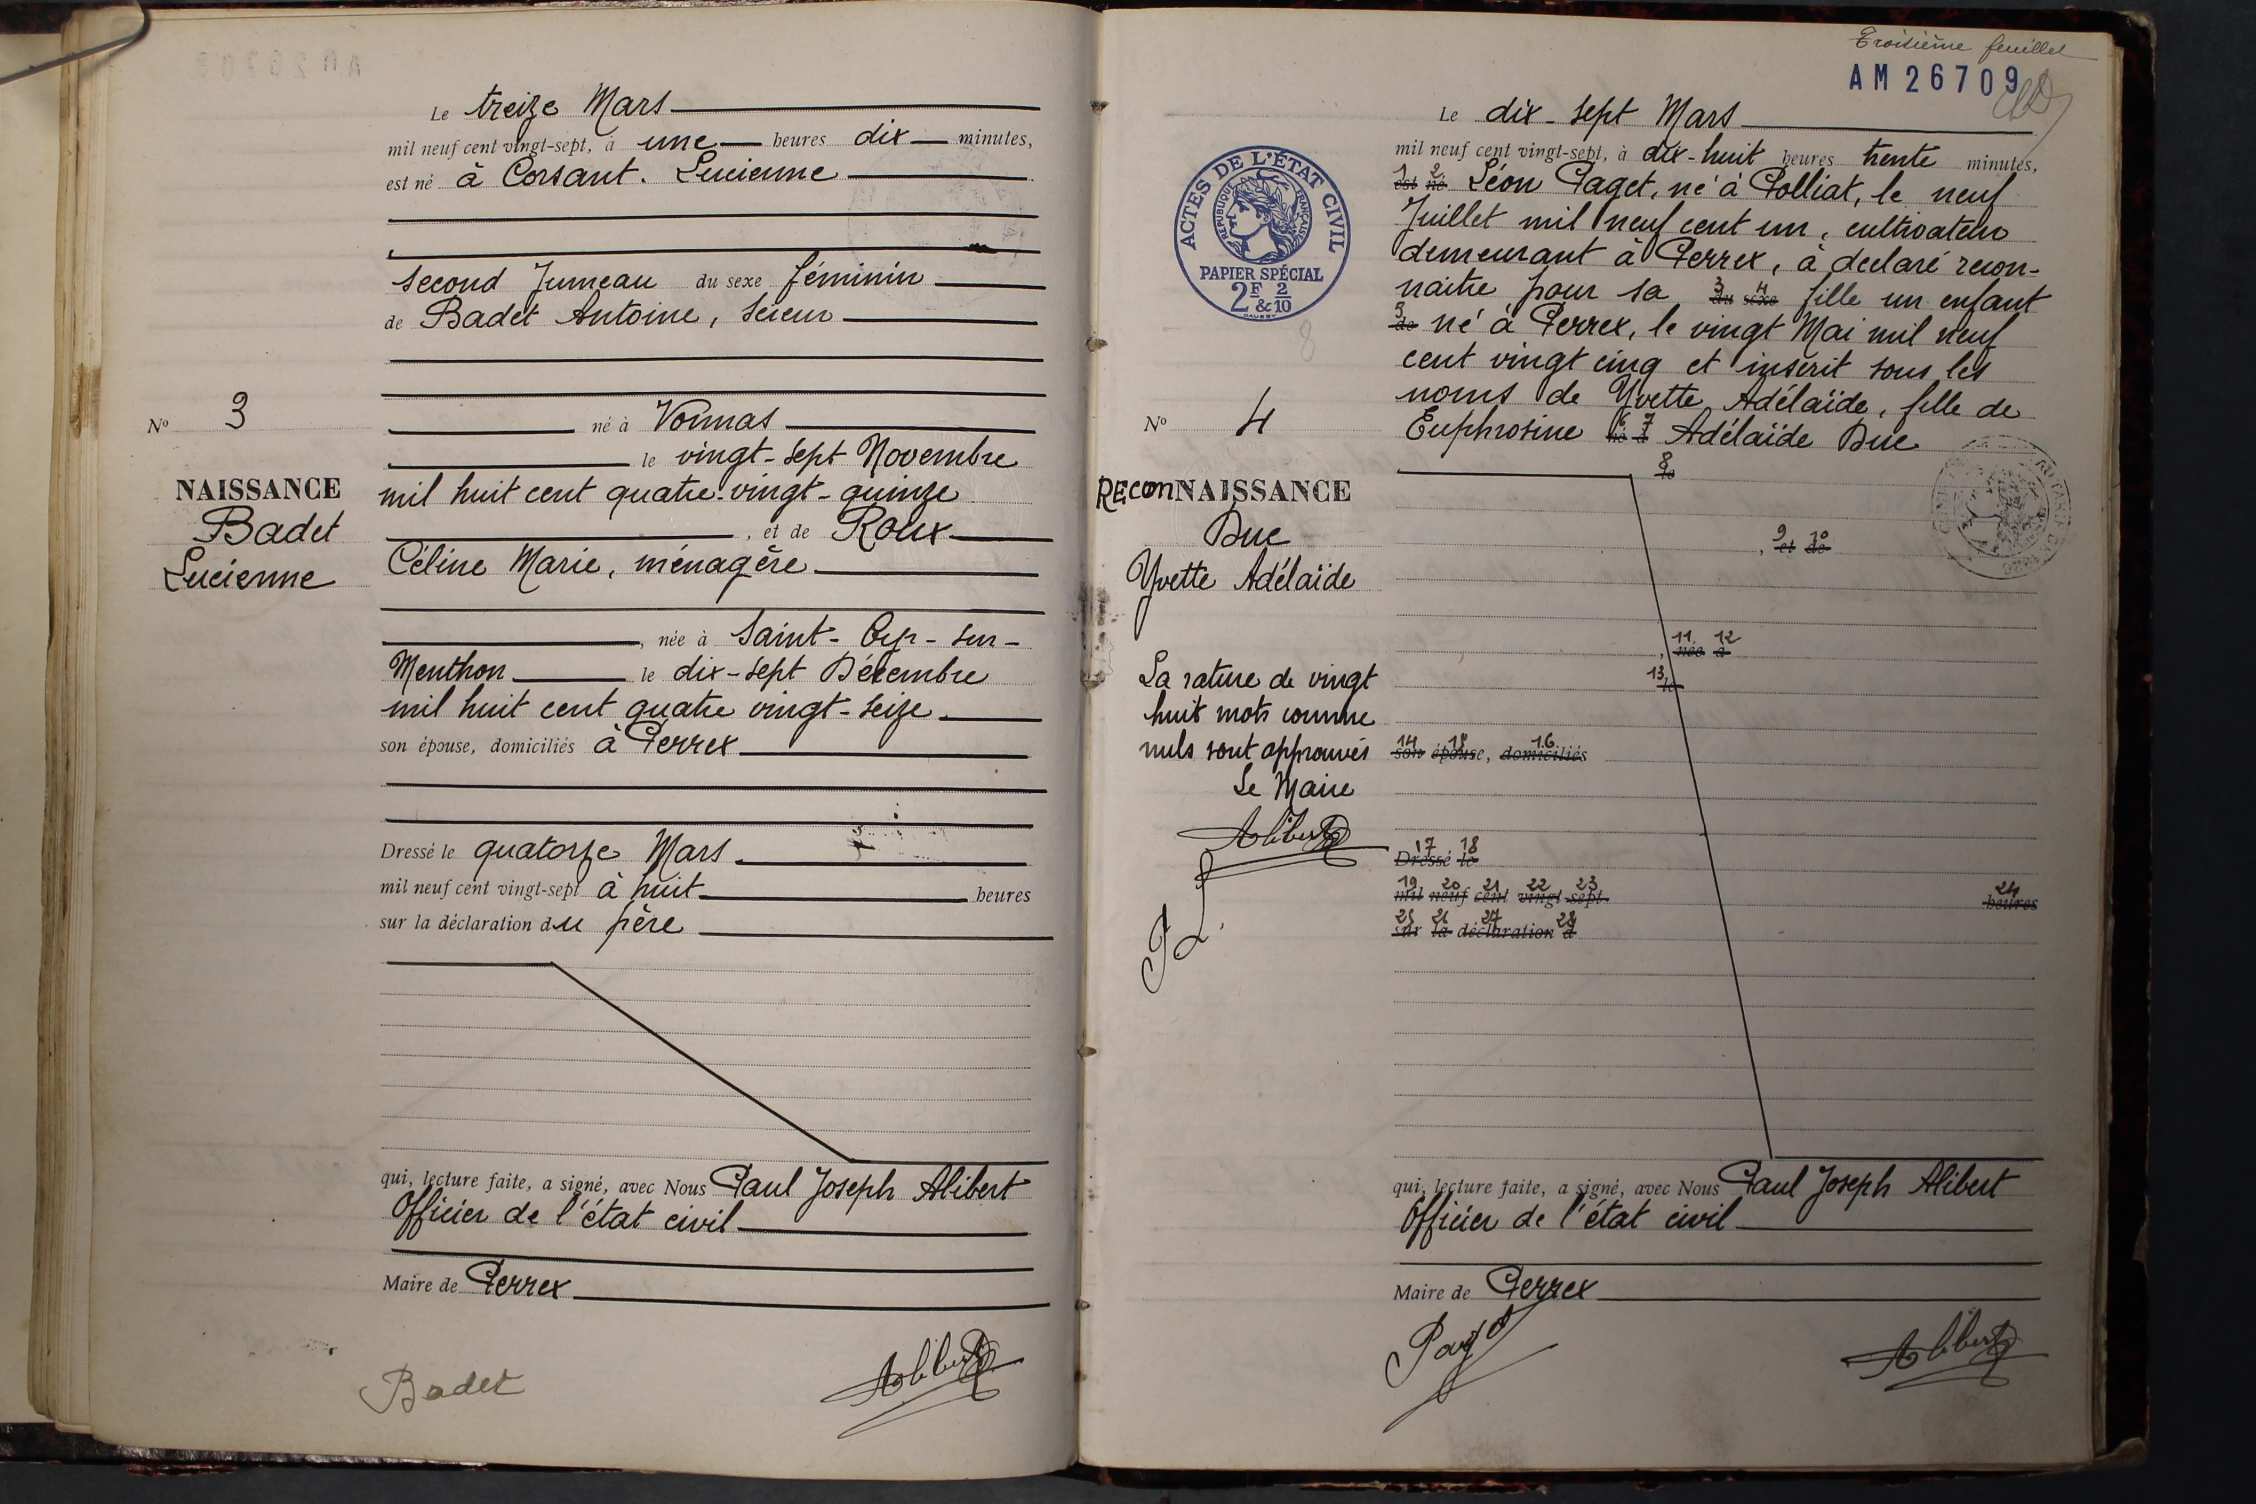 Le treize Mars
mil neuf cent vingt-sept, à une heures dix minutes,
est né à Corsant. Lucienne
second Jumeau du sexe féminin
de Badet Antoine, scieur
né à Vonnas
le vingt-sept Novembre
mil huit cent quatre-vingt-quinze
, et de Roux
Céline Marie, ménagère
, née à Saint-Cyr-sur-
Menthon le dix-sept Décembre
mil huit cent quatre vingt-seize
son épouse, domiciliés à Perrex
Dressé le quatorze Mars
mil neuf cent vingt-sept à huit heures
sur la déclaration du père
qui, lecture faite, a signé, avec Nous Paul Joseph Alibert
Officier de l'état civil
Maire de Perrex
Badet Alibert
No 3
NAISSANCE
Badet
Lucienne
Troisième feuillet
AM 26709
ACTES DE L'ÉTAT CIVIL
RÉPUBLIQUE FRANÇAISE
PAPIER SPÉCIAL
2F & 2/10
8
No 4
RECONNAISSANCE
Duc
Yvette Adélaïde
La rature de vingt
huit mots comme
nuls sont approuvés
Le Maire
Alibert
P L.
Le dix-sept Mars
mil neuf cent vingt-sept, à dix-huit heures trente minutes,
1 2
est né Léon Paget, né à Polliat, le neuf
Juillet mil neuf cent un, cultivateur
demeurant à Perrex, à declaré recon-
3 4
naitre pour sa du sexe fille un enfant
5
de né à Perrex, le vingt Mai mil neuf
cent vingt cinq et inscrit sous les
noms de Yvette Adélaïde, fille de
6 7
Euphrosine né à Adélaïde Duc
8
le
9 10
, et de
11 12
, née à
13
le
14 15 16
son épouse, domiciliés
17 18
Dressé le
19 20 21 22 23 24
mil neuf cent vingt-sept heures
25 26 27 28
sur la déclaration d
qui, lecture faite, a signé, avec Nous Paul Joseph Alibert
Officier de l'état civil
Maire de Perrex
Paget Alibert